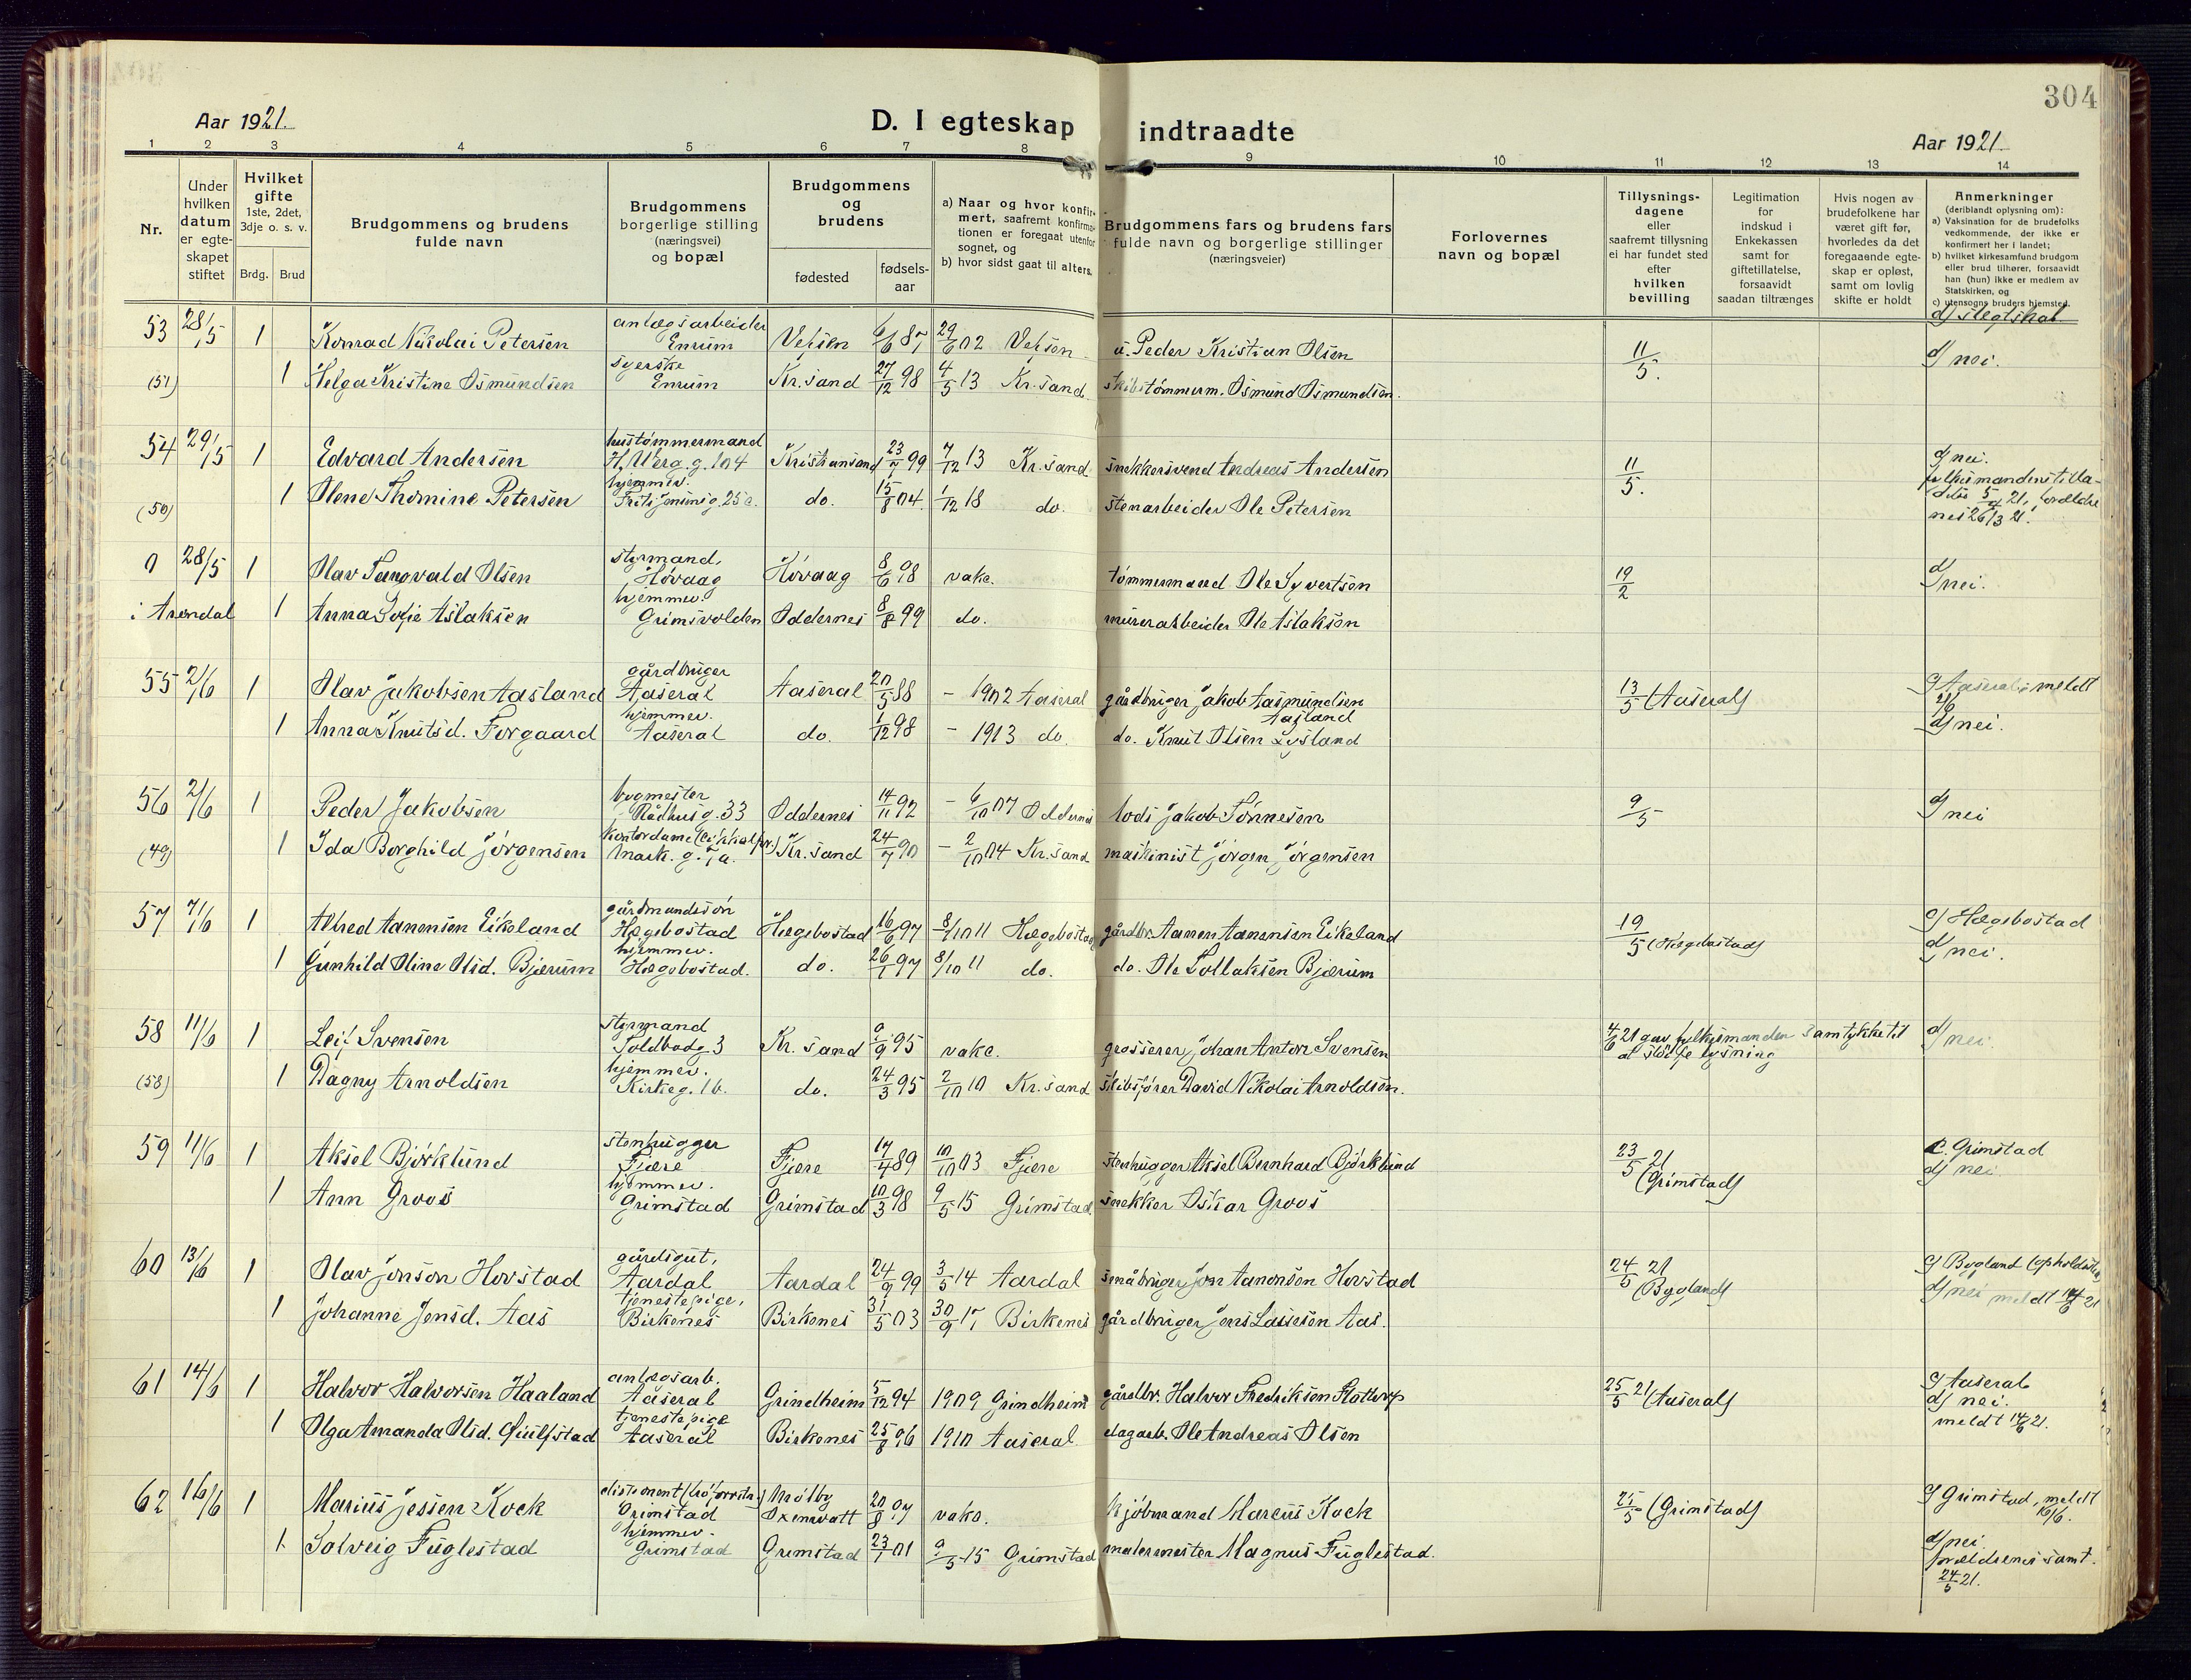 304
Aar 1921.
D. I egteskap indtraadte
Aar 1921.
1 2 3 4 5 6 7 8 9 10 11 12 13 14
Nr.
Under hvilken datum er egteskapet stiftet
Hvilket gifte 1ste, 2det, 3dje o. s. v.
Brdg. Brud
Brudgommens og brudens fulde navn
Brudgommens borgerlige stilling (næringsvei) og bopæl
Brudgommens og brudens
fødested
fødsels-aar
a) Naar og hvor konfirmert, saafremt konfirmationen er foregaat utenfor sognet, og
b) hvor sidst gaat til alters.
Brudgommens fars og brudens fars fulde navn og borgerlige stillinger (næringsveier)
Forlovernes navn og bopæl
Tillysnings-dagene eller saafremt tillysning ei har fundet sted efter hvilken bevilling
Legitimation for indskud i Enkekassen samt for giftetillatelse, forsaavidt saadan tiltrænges
Hvis nogen av brudefolkene har været gift før, hvorledes da det foregaaende egteskap er opløst, samt om lovlig skifte er holdt
Anmerkninger (deriblandt oplysning om):
a) Vaksination for de brudefolks vedkommende, der ikke er konfirmert her i landet;
b) hvilket kirkesamfund brudgom eller brud tilhører, forsaavidt han (hun) ikke er medlem av Statskirken, og
c) utensogns bruders hjemsted.
d) slegtskab
53 28/5 1 Konrad Nikolai Petersen anlægsarbeider Enrum Vefsen 6/6 87 29/6 02 Vefsen u. Peder Kristian Olsen 11/5. d) nei.
(51) 1 Helga Kristine Osmundsen syerske Enrum Kr.sand 27/12 98 4/5 13 Kr.sand skibstømmerm. Osmund Osmundsen.
54 29/5 1 Edvard Andersen hustømmermand H. Werg. g. 104 Kristiansand 23/7 99 7/12 13 Kr.sand snekkersvend Andreas Andersen 11/5. d) nei.
(50) 1 Olene Thomine Petersen hjemmev. Frits Jensensg. 25c. do. 15/8 04. 1/12 18 do. stenarbeider Ole Petersen fylkesmandens tilladelse 5/4 21, forældrenes 26/3 21.
0 28/5 1 Olav Tangvald Olsen styrmand, Høvaag Høvaag 8/6 98 vakc. tømmermand Ole Syvertsen 19/2 d) nei.
i Arendal 1 Anna Sofie Aslaksen hjemmev. Grimsvolden Oddernes 8/8 99 do. murerarbeider Ole Aslaksen
55 2/6 1 Olav Jakobsen Aasland gårdbruger Aaseral Aaseral 20/5 88 - 1902 Aaseral gårdbruger Jakob Aasmundsen Aasland 13/5 (Aaseral) c) Aaseral, meldt 2/6
1 Anna Knutsd. Forgaard hjemmev. Aaseral do. 1/12 98 - 1913 do. do. Knut Olsen Lysland d) nei.
56 2/6 1 Peder Jakobsen bygmester Rådhusg. 33 Oddernes 14/11 92 - 6/10 07 Oddernes lods Jakob Tønnesen 9/5 d) nei
(49) 1 Ida Borghild Jørgensen kontordame Mark. g. 7a. Kr.sand 24/7 90 - 2/10 04 Kr.sand maskinist Jørgen Jørgensen
57 7/6 1 Alfred Aanensen Eikeland gårdmandssøn Hægebostad Hægebostad 16/6 97 8/10 11 Hægebostad gårdbr. Aanen Aanensen Eikeland 19/5 (Hægebostad) c) Hægebostad
1 Gunhild Oline Olsd. Bjærum hjemmev. Hægebostad. do. 26/1 97 8/10 11 do. do. Ole Tollaksen Bjærum d) nei.
58 11/6 1 Leif Svensen styrmand Toldbodg. 3 Kr.sand 9/9 95 vakc. grosserer Johan Anton Svensen 4/6 21 gav fylkesmanden samtykke til at sløife lysning d) nei
(58) 1 Dagny Arnoldsen hjemmev. Kirkeg. 16. do. 24/3 95 2/10 10 Kr.sand skibsfører David Nikolai Arnoldsen.
59 11/6 1 Aksel Bjørklund stenhugger Fjære Fjære 17/4 89 10/10 03 Fjære stenhugger Aksel Bernhard Bjørklund 23/5 21 (Grimstad) c. Grimstad
1 Ann Groos hjemmev. Grimstad Grimstad 10/3 98 9/5 15 Grimstad. snekker Oskar Groos d) nei
60 13/6 1 Olav Jonson Hovstad gårdsgut, Aardal Aardal 24/9 99 3/5 14 Aardal småbruger Jon Aanonsen Hovstad 24/5 21 (Bygland) c) Bygland (opholdssted)
1 Johanne Jensd. Aas tjenestepige, Birkenes Birkenes 31/5 03 30/9 17 Birkenes gårdbruger Jens Lassesen Aas. d) nei meldt 14/6 21
61 14/6 1 Halvor Halvorsen Haaland anlægsarb. Aaseral Grindheim 5/12 94 1909 Grindheim gårdbr. Halvor Fredriksen Flottorp 25/5 21 (Aaseral) c) Aaseral
1 Olga Amanda Olsd. tjenestepige Aaseral Birkenes 25/8 96 1910 Aaseral dagarb. Ole Andreas Olsen d) nei. meldt 14/6 21.
62 16/6 1 Marius Jessen Kock disponent Grimstad Mølby Oxenvatt 20/8 97 vakc. kjøbmand Marcus Kock 25/5 (Grimstad) c) Grimstad, meldt 16/6.
1 Solveig Fuglestad hjemmev. Grimstad Grimstad 23/1 01 9/5 15 Grimstad malermester Magnus Fuglestad. d) nei. Forældrenes samt. 24/5 21.